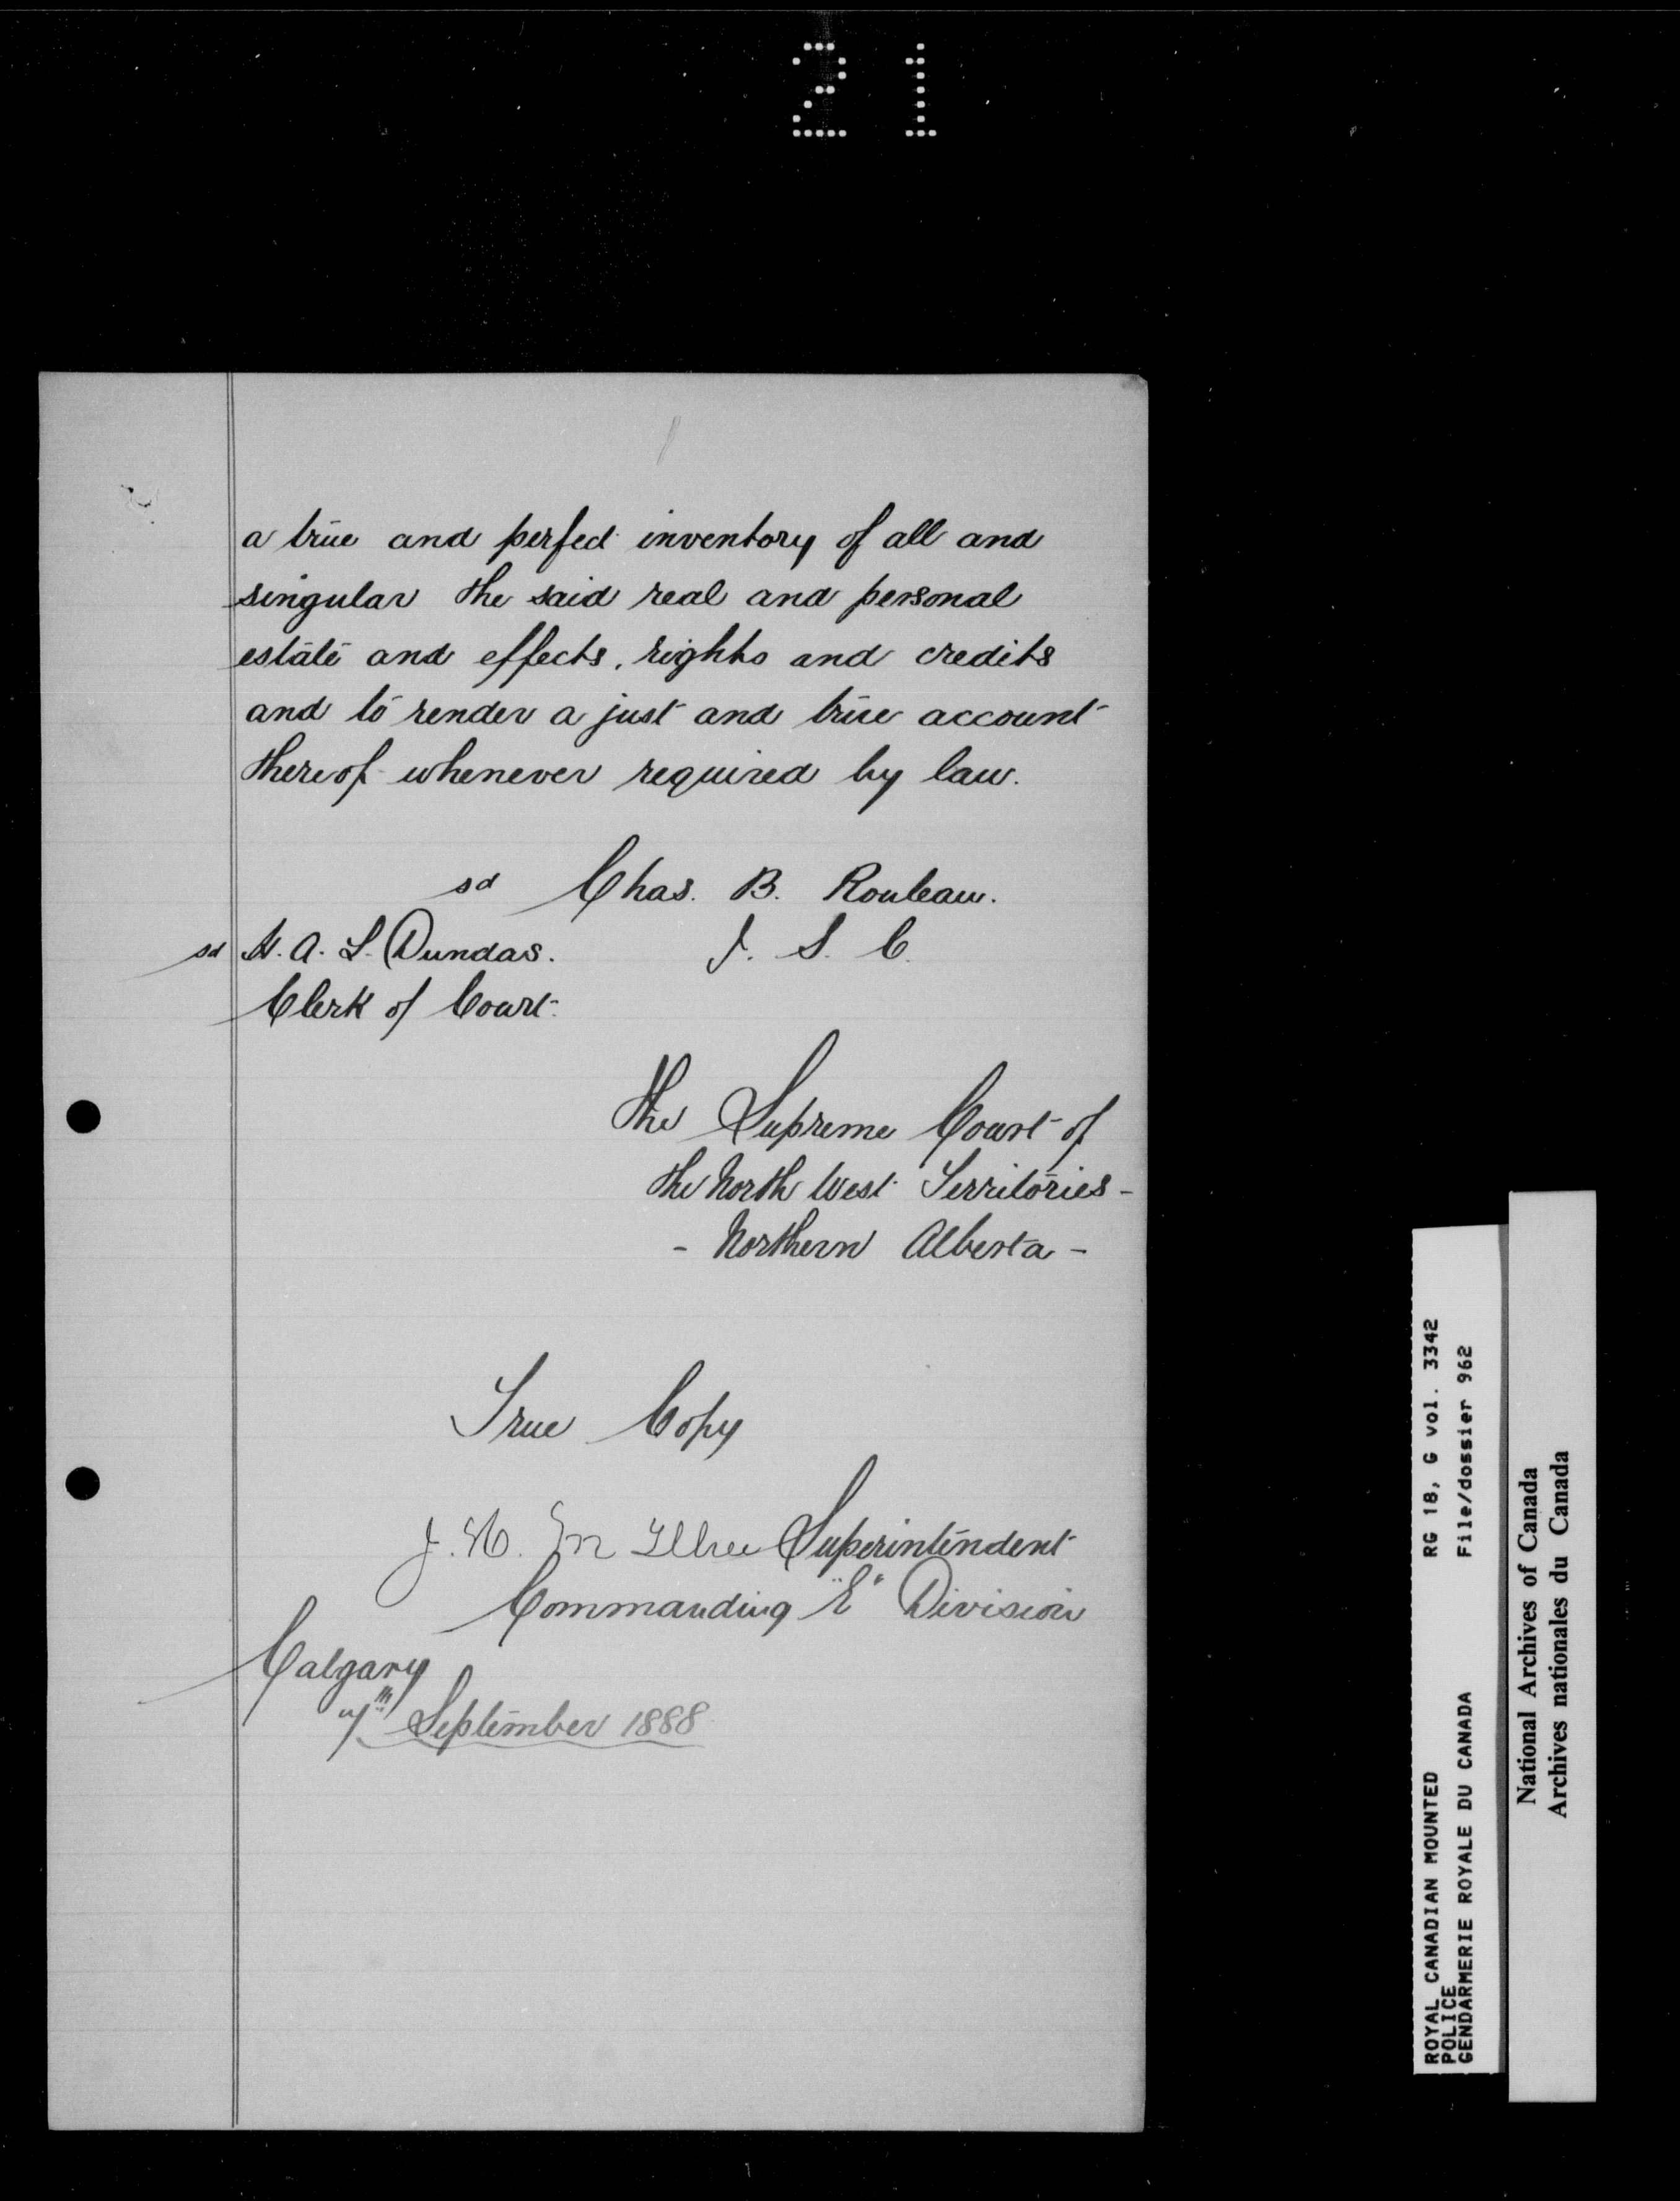 21
a true and perfect inventory of all and
singular the said real and personal
estate and effects, rights and credits
and to render a just and true account
thereof whenever required by law.
sd Chas. B. Rouleau.
sd H. A. L. Dundas. J. S. C.
Clerk of Court.
The Supreme Court of
the North West Territories -
- Northern Alberta -
True Copy
J. H. McIllree Superintendent
Commanding "E" Division
Calgary
7th September 1888
ROYAL CANADIAN MOUNTED RG 18, G vol. 3342
POLICE File/dossier 962
GENDARMERIE ROYALE DU CANADA
National Archives of Canada
Archives nationales du Canada